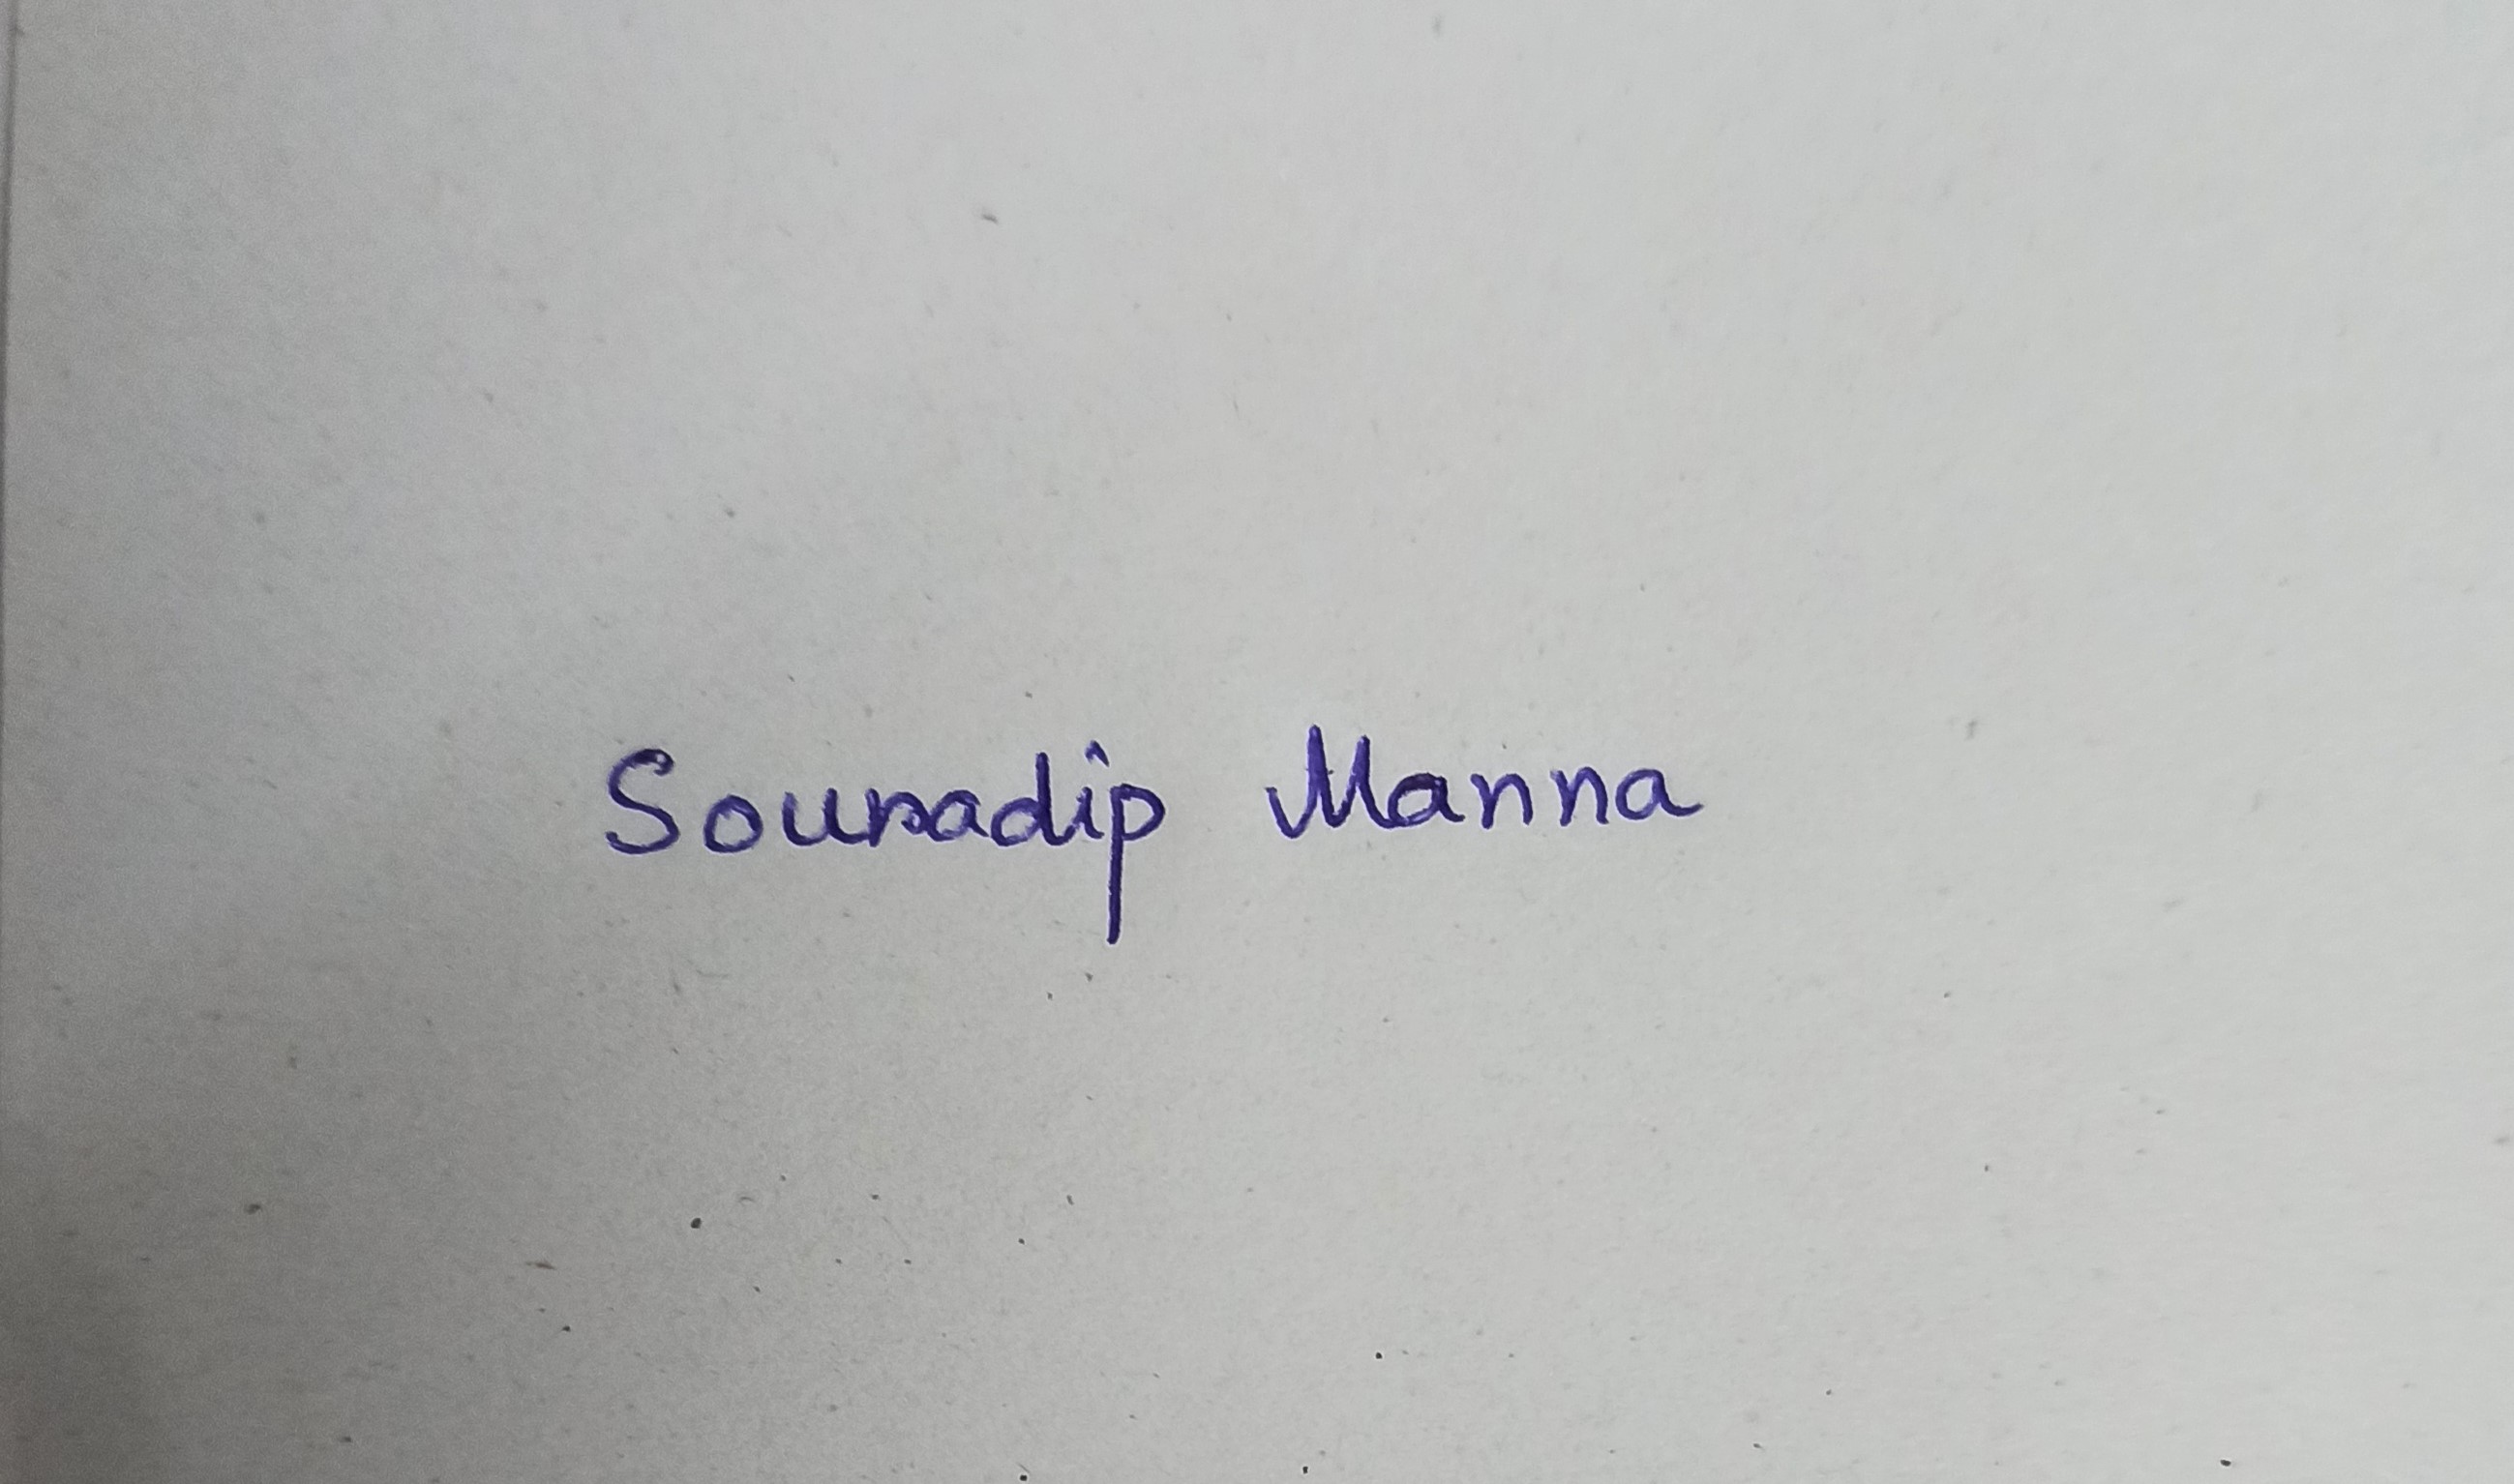 Souradip Manna